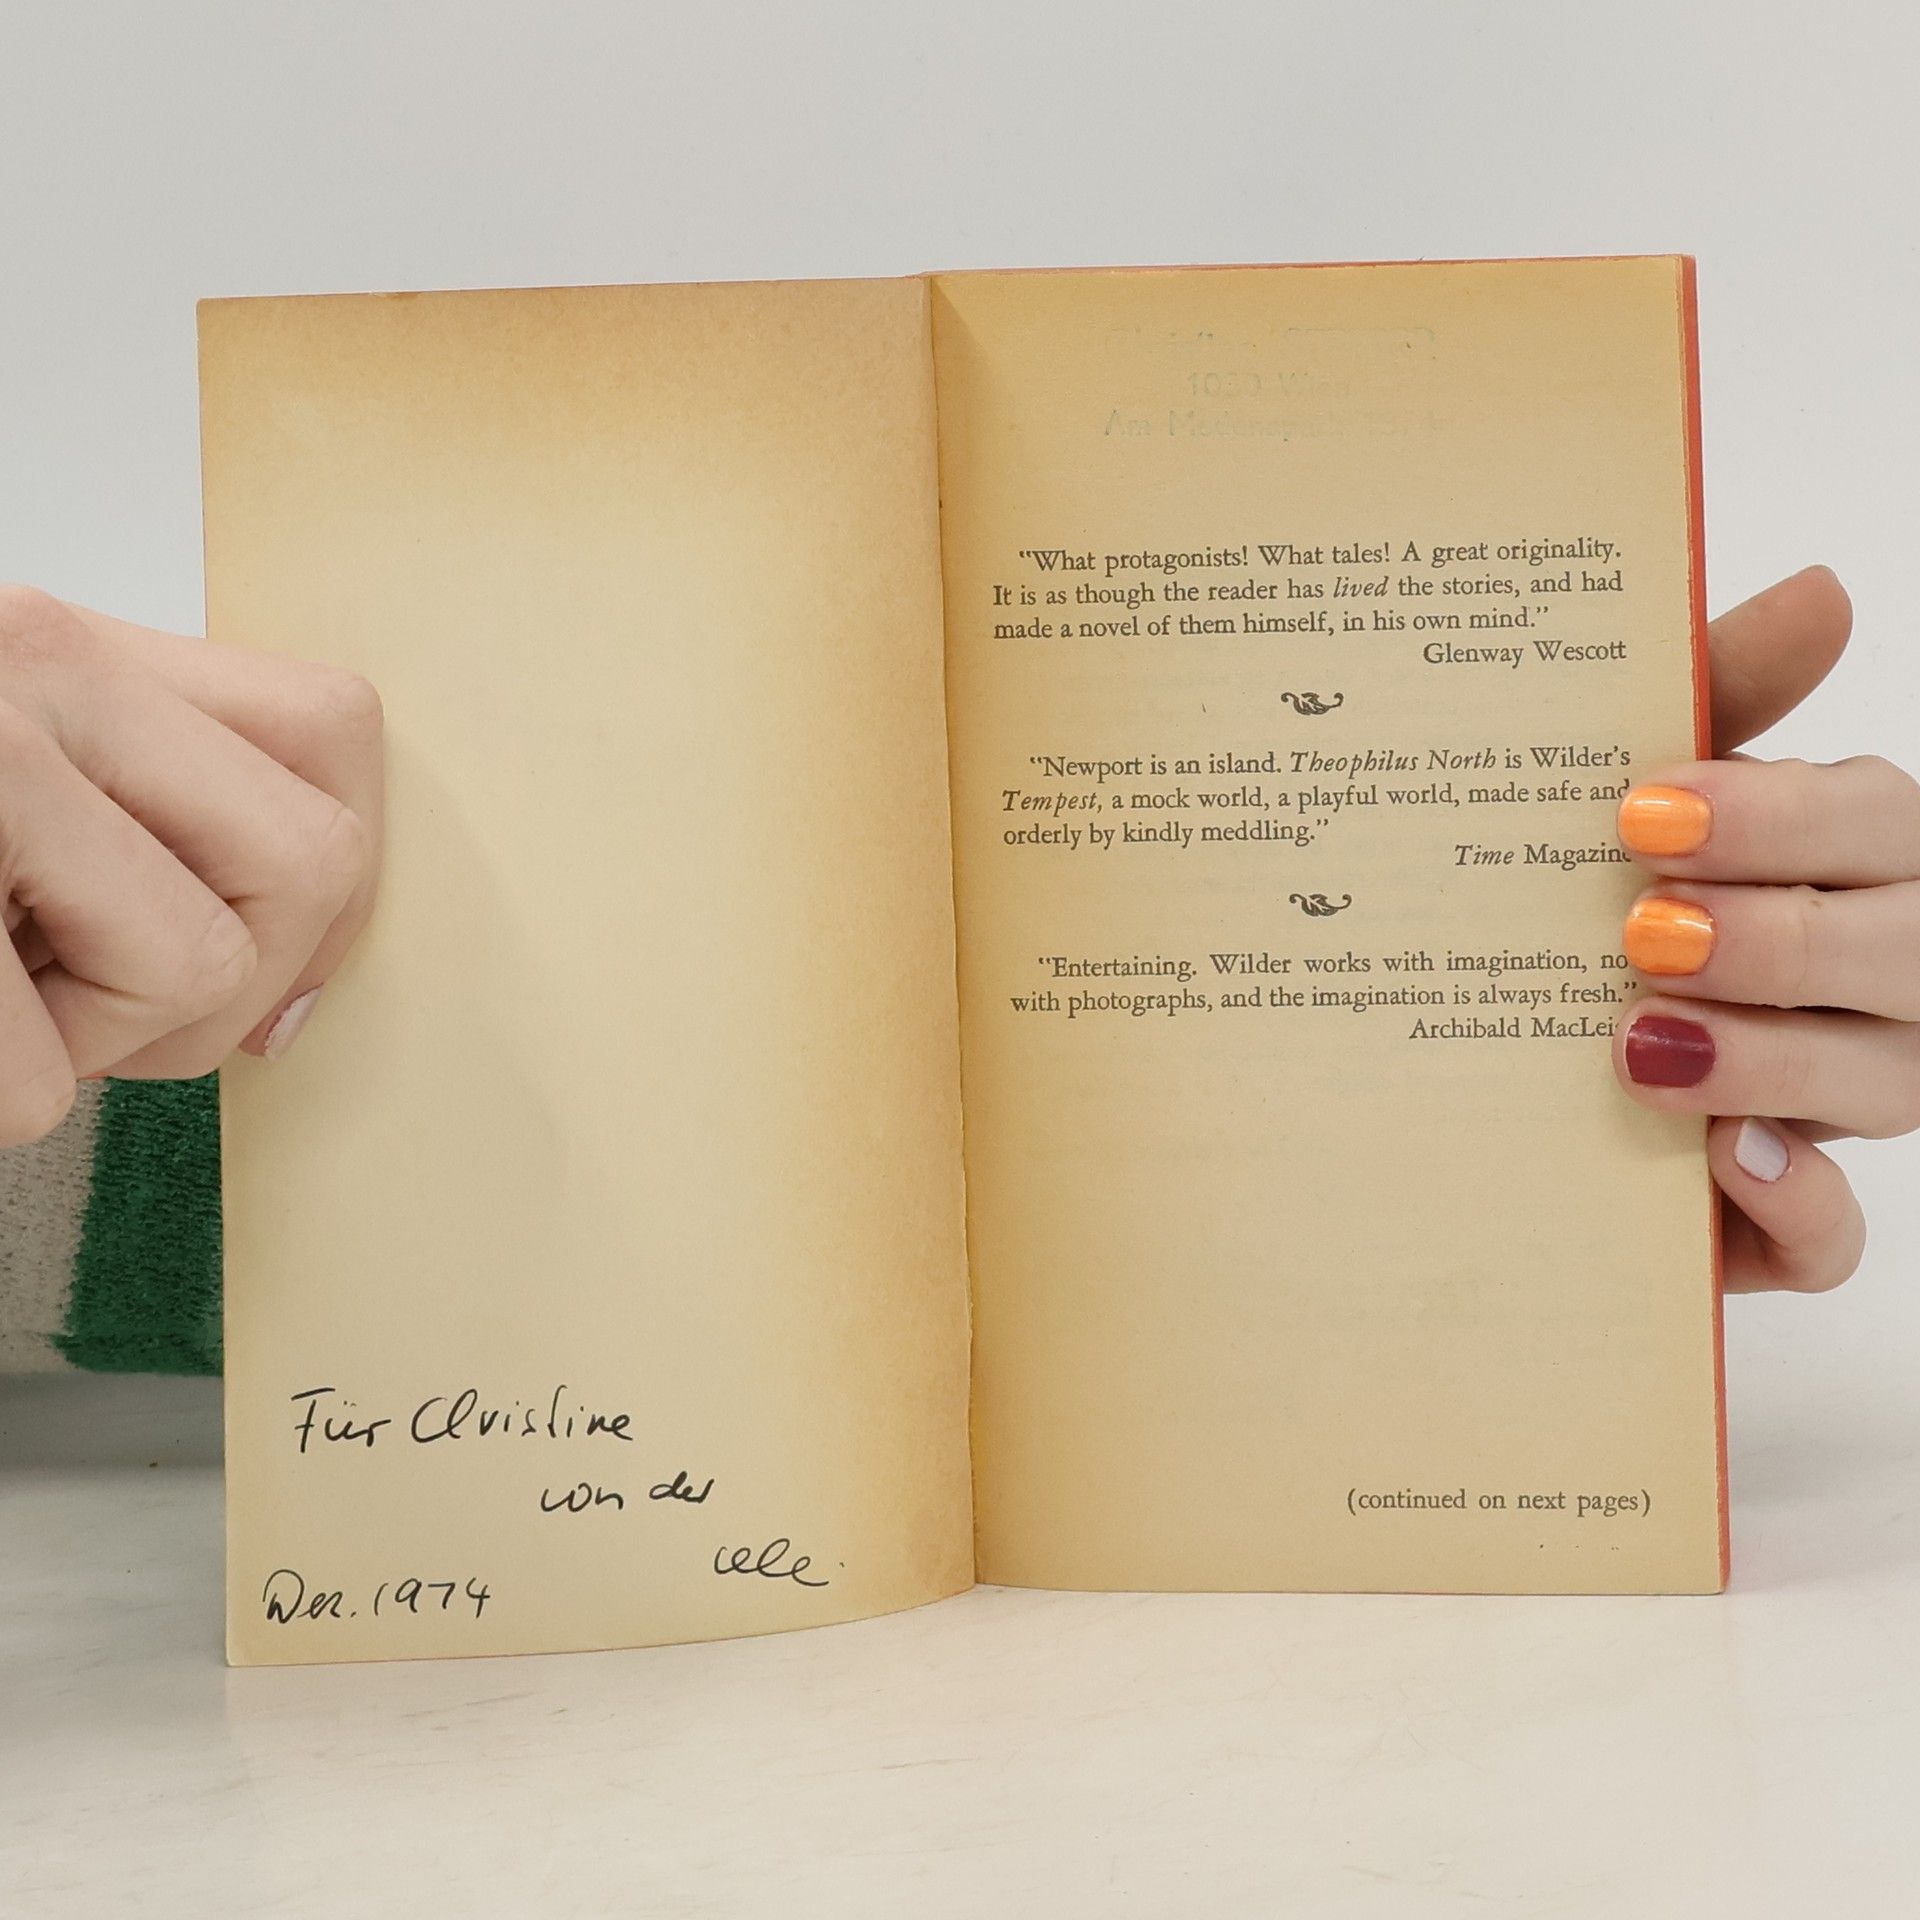 Für Christine
von der
Dez. 1974
1030 Wien
Am
"What protagonists! What tales! A great originality.
It is as though the reader has lived the stories, and had
made a novel of them himself, in his own mind."
Glenway Wescott
"Newport is an island. Theophilus North is Wilder's
Tempest, a mock world, a playful world, made safe and
orderly by kindly meddling."
Time Magazine
"Entertaining. Wilder works with imagination, no
with photographs, and the imagination is always fresh."
Archibald MacLeis
(continued on next pages)